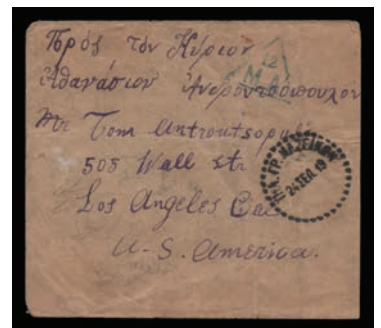 Πρὸς τὸν Κύριον
Ἀθανάσιον Ἀνδρουτσόπουλον
Mr Tom Antroutsopul
505 Wall str
Los Angeles Cal
U-S. America.
12
Μ.Λ.
ΤΗΛ. ΓΡ. ΜΑΖΕΙΚΩΝ
24 ΣΕΠ. 19